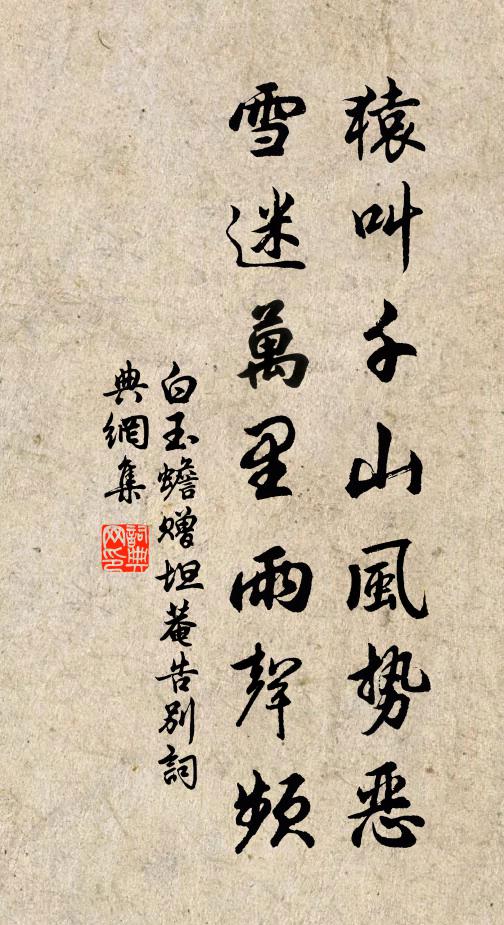 猿叫千山風勢惡
雪迷萬里雨聲頻
白玉蟾贈坦菴告別詞
典網集
詞典網印